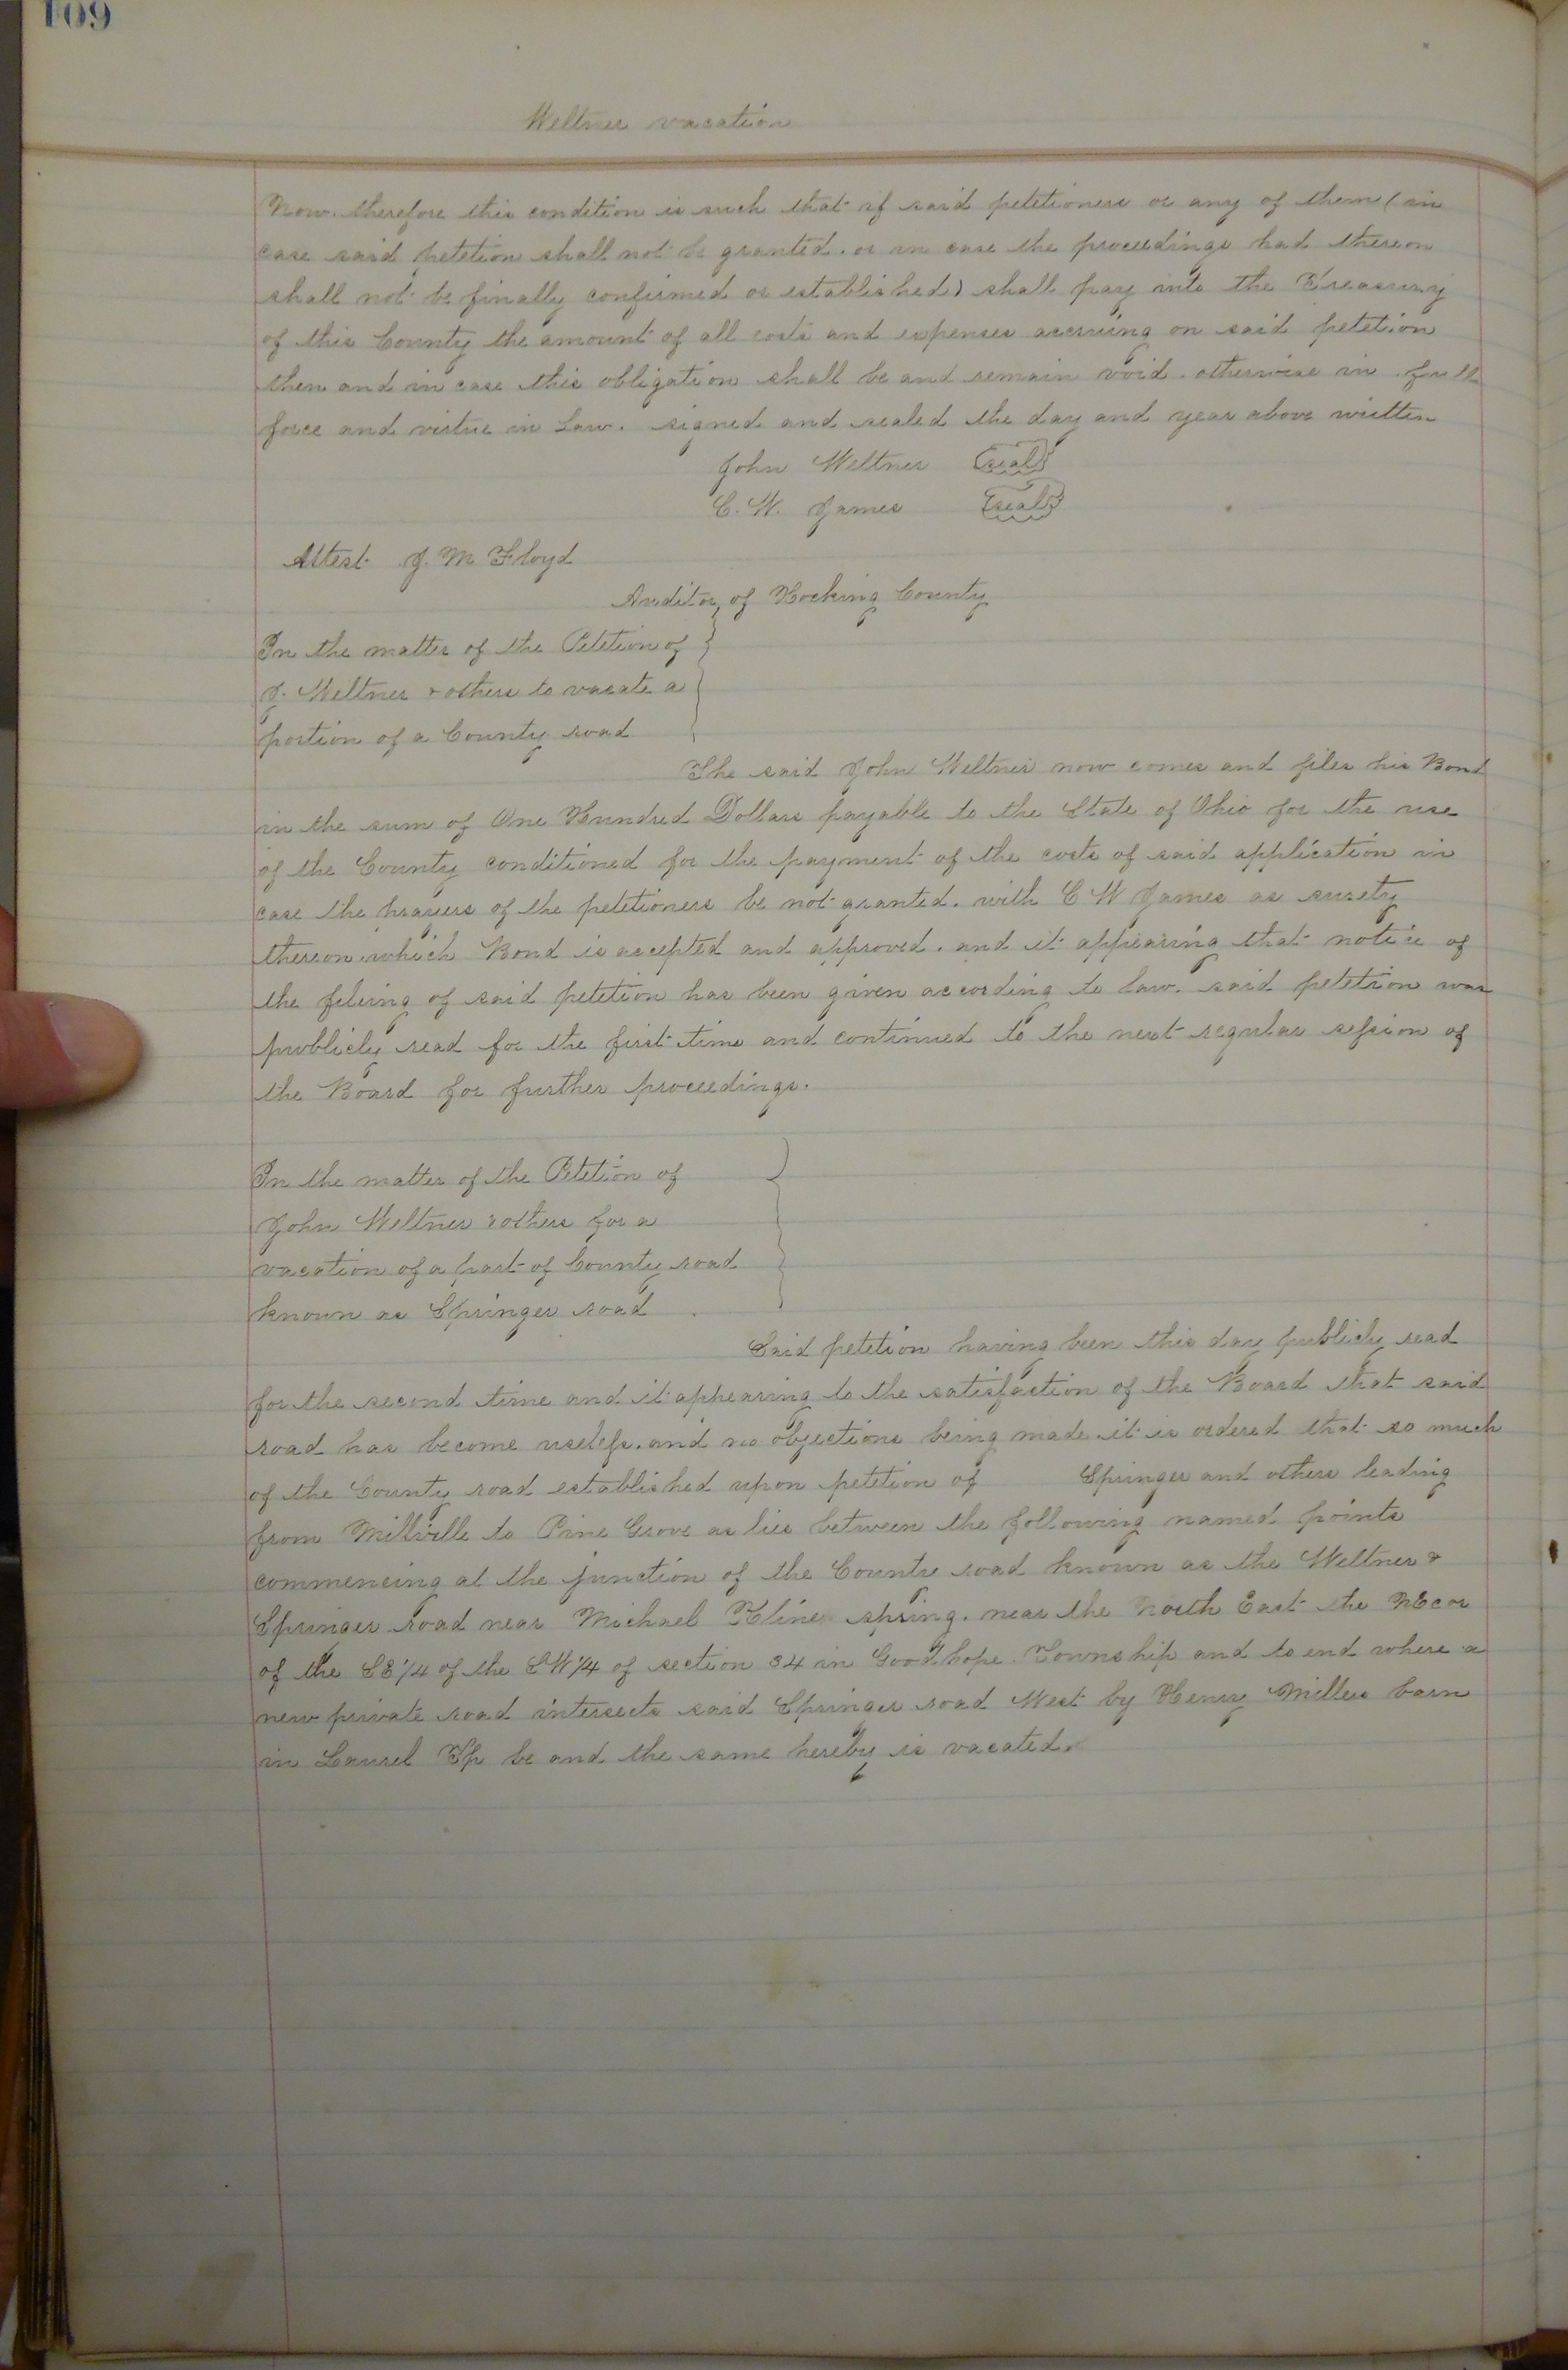 109
Weltner vacation
Now. therefore this condition is such that if said petetioners or any of them (in
case said petetion shall not be granted. or in case the proceedings had thereon
shall not be finally confirmed or established) shall pay into the Treasury
of this County the amount of all costs and expenses accruing on said petetion
then and in case this obligation shall be and remain void. otherwise in full
force and virtue in Law. signed and sealed the day and year above written
John Weltner seal
C. W. James seal
Attest J. M. Floyd
Auditor, of Hocking County
In the matter of the Petetion of
J. Weltner & others to vacate a
portion of a County road
The said John Weltner now comes and files his Bond
in the sum of One Hundred Dollars payable to the State of Ohio for the use
of the County conditioned for the payment of the costs of said application in
case the prayers of the petetioners be not granted. with C W James as surety
thereon. which Bond is accepted and approved. and it appearing that notice of
the fileing of said petetion has been given according to law. said petetion was
publicly read for the first time and continued to the next regular session of
the Board for further proceedings.
In the matter of the Petetion of
John Weltner & others for a
vacation of a part of County road
known as Springer road
Said petetion having been this day publicly read
for the second time and it appearing to the satisfaction of the Board that said
road has become useless. and no objections being made. it is ordered that so much
of the County road established upon petetion of Springer and others leading
from Millville to Pine Grove as lies between the following named points
commencing at the junction of the County road known as the Weltner &
Springer road near Michael Kline spring. near the North East the NEcor
of the SE 1/4 of the SW 1/4 of section 34 in Good hope Township and to end where a
new private road intersects said Springer road West by Henry Millers barn
in Laurel Tp be and the same hereby is vacated.